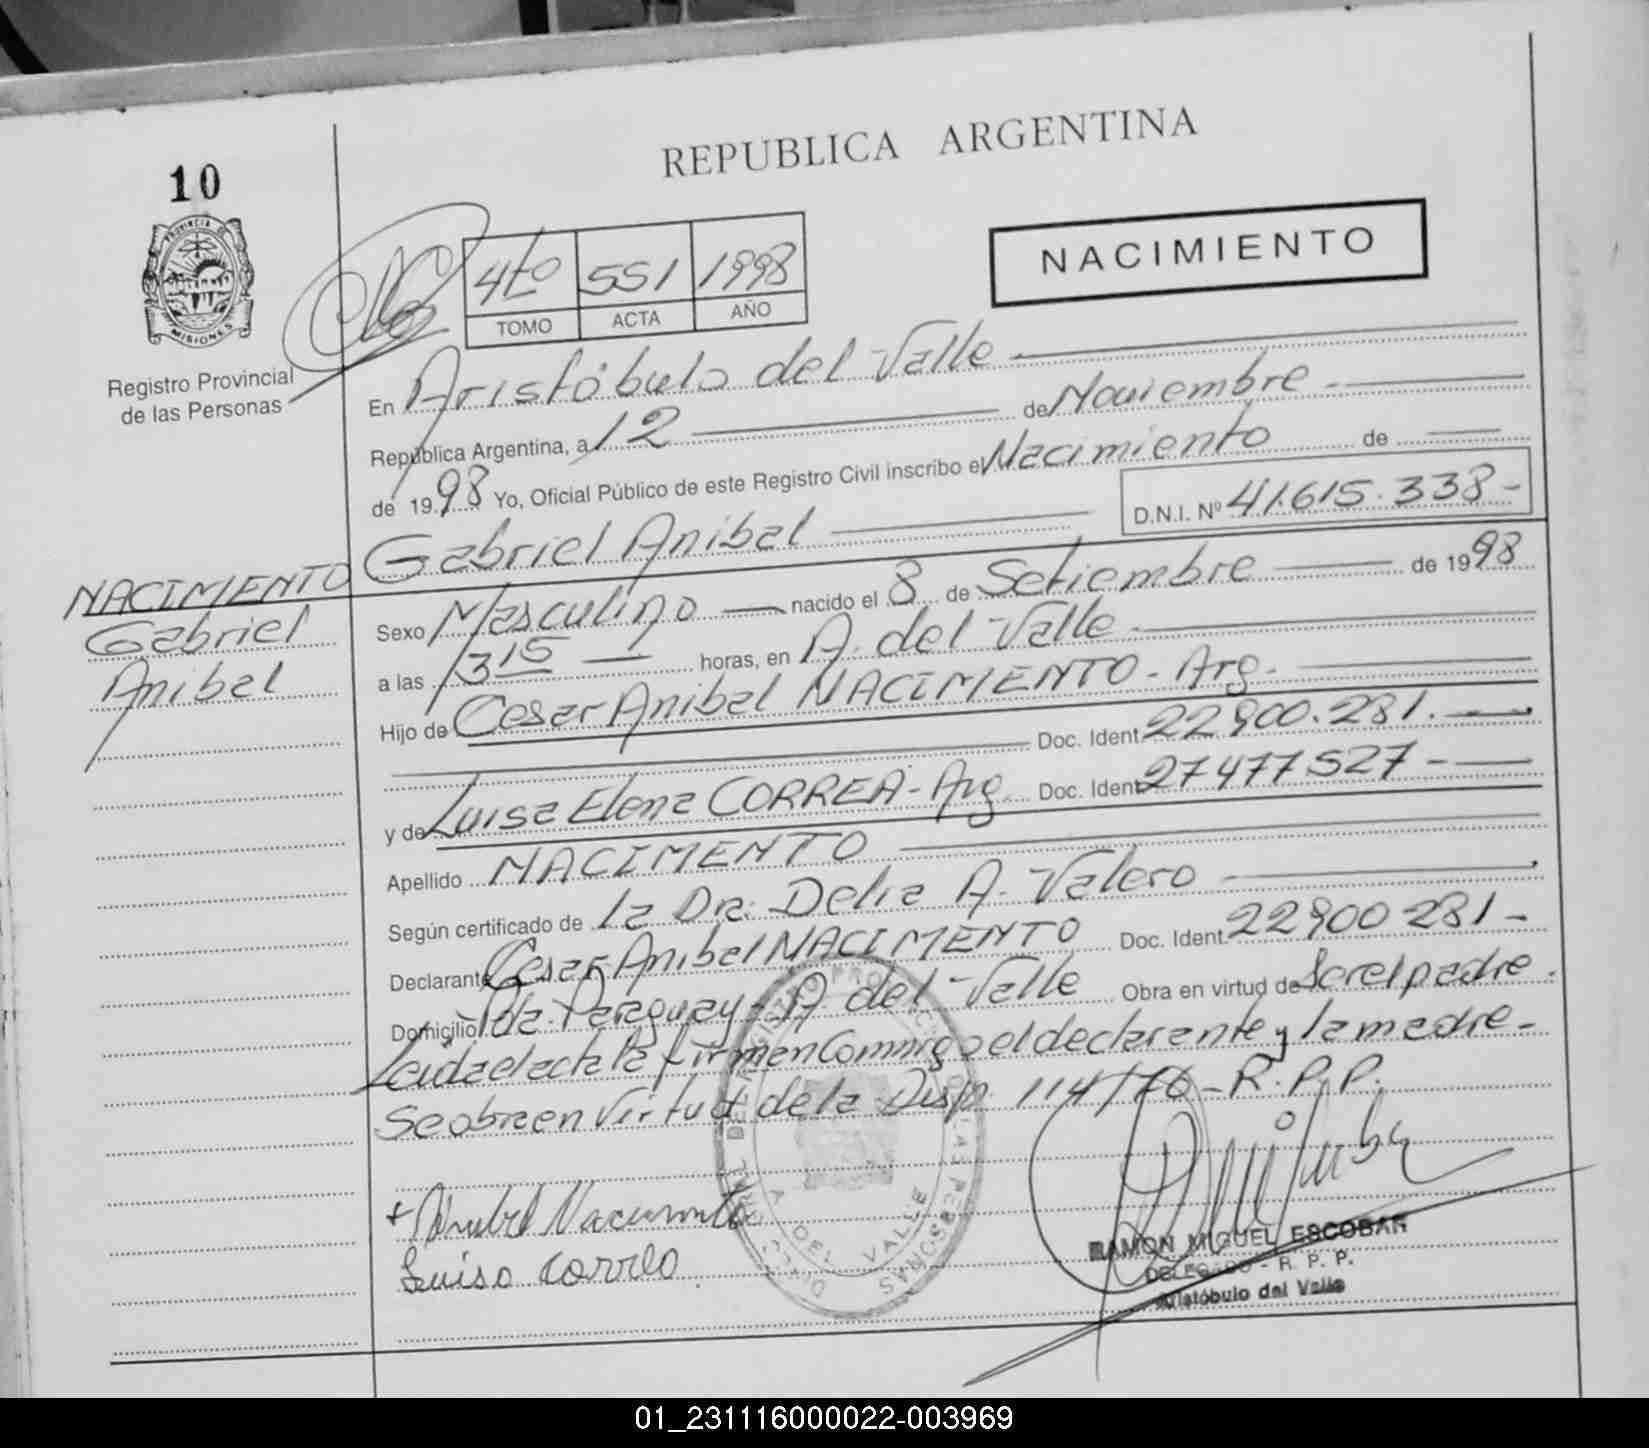 REPUBLICA ARGENTINA
10
PROVINCIA DE
MISIONES
Registro Provincial
de las Personas
4to 551 1998
TOMO ACTA AÑO
NACIMIENTO
En Aristóbulo del Valle
República Argentina, a 12 de Noviembre
de 1998 Yo, Oficial Público de este Registro Civil inscribo el Nacimiento de
D.N.I. Nº 41.615.338-
Gabriel Anibal
NACIMIENTO
Gabriel
Anibal
Sexo Masculino nacido el 8 de Setiembre de 1998
a las 13 15 horas, en A. del Valle
Hijo de Cesar Anibal NACIMIENTO - Arg.
Doc. Ident. 22900.281.
y de Luisa Elena CORREA - Arg. Doc. Ident. 27477527-
Apellido NACIMENTO
Según certificado de la Dra. Delia A. Valero
Declarante Cesar Anibal NACIMENTO Doc. Ident. 22900281-
Domicilio Paraguay - A del Valle Obra en virtud de Ser el padre.
Leida el acta la firman Conmigo el declarante y la madre-
Se obra en Virtud de la Disp. 114/76 - R.P.P.
+ Anibal Nacimento
Luisa Correa
A DEL VALLE
RAMON MIGUEL ESCOBAR
DELEGADO - R. P. P.
Aristóbulo del Valle
01_231116000022-003969